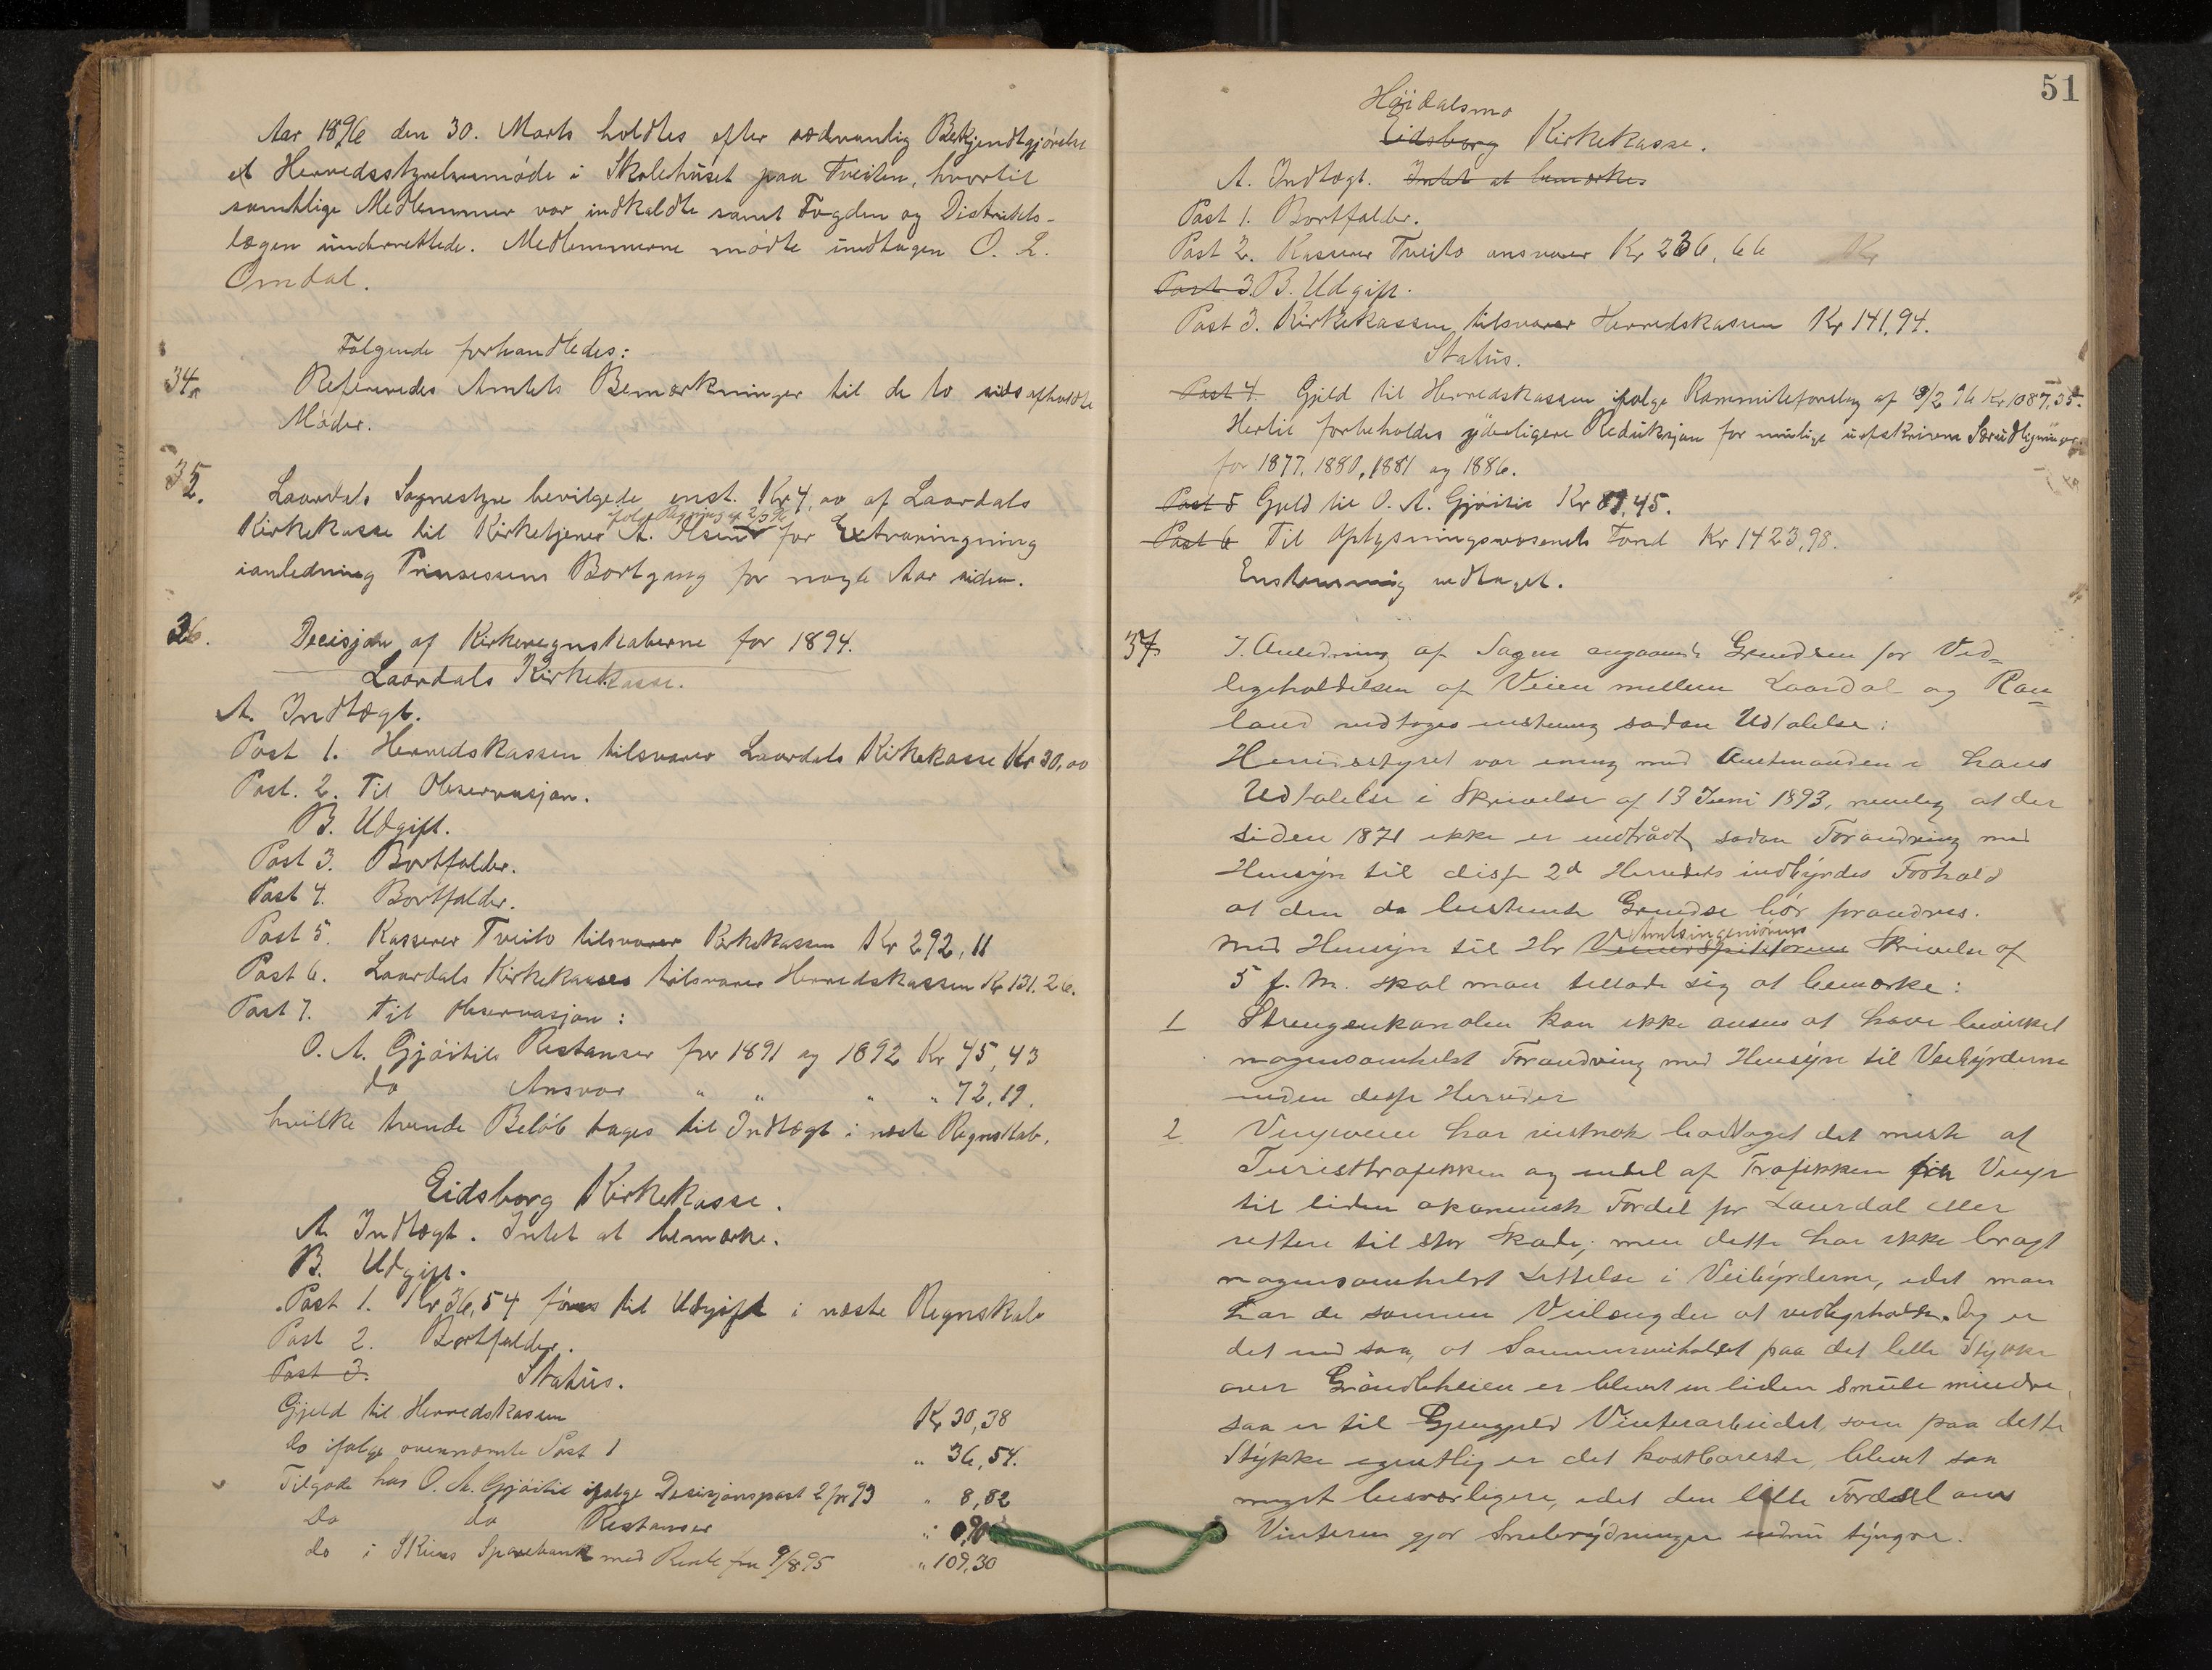 Aar 1896 den 30. Marts holdtes efter sædvanlig Bekjendtgjørelse
et Herredsstyrelsesmøde i Skolehuset paa Tveiten, hvortil
samtlige Medlemmer var indkaldte samt Fogden og Distrikts-
lægen underrettede. Medlemmerne mødte undtagen O. L.
Omdal.
Følgende forhandledes:
34. Refereredes Amtets Bemærkninger til de to sidst afholdte
Møder.
35. Laardals Sognestyre bevilgede enst. Kr 4,00 af Laardals
Kirkekasse til Kirketjener A. Olsen for Extraringning
ianledning Prinsessens Bortgang for nogle Aar siden.
36. Decisjon af Kirkeregnskaberne for 1894.
Laardals Kirkekasse.
A. Indtægt.
Post 1. Herredskassen tilsvarer Laardals Kirkekasse Kr 30,00
Post. 2. Til Observasjon.
B. Udgift.
Post 3. Bortfalder.
Post 4. Bortfalder.
Post 5. Kasserer Tveito tilsvarer Kirkekassen Kr 292,11
Post 6. Laardals Kirkekasse tilsvarer Herredskassen Kr 131.26.
Post 7. til Observasjon:
O. A. Gjøitils Restanser for 1891 og 1892 Kr 45,43
do Ansvar " " " " 72,19.
hvilke tvende Beløb tages til Indtægt i næste Regnskab.
Eidsborg Kirkekasse.
A. Indtægt. Intet at bemærke.
B. Udgift.
Post 1. Kr 36,54 føres til Udgift i næste Regnskab
Post 2. Bortfalder.
Post 3. Status.
Gjeld til Herredskassen Kr 30,38
Do ifølge ovennævnte Post 1 " 36,54.
Tilgode hos O. A. Gjøitil ifølge Decisjonspost 2 for 93 " 8,82
Do do Restanser "
do i Skiens Sparebank med Rente fra 9/8 95 " 109,30
51
Høidalsmo
Eidsborg Kirkekasse.
A. Indtægt. Intet at bemærke
Post 1. Bortfalder.
Post 2. Kasserer Tveito ansvarer Kr 236,66 Kr
Post 3. B. Udgift.
Post 3. Kirkekassen tilsvarer Herredskassen Kr 141,94.
Status.
Post 4. Gjeld til Herredskassen ifølge Kommiteforslag af 8/2 96 Kr 1087,35.
Hertil forbeholdes yderligere Reduksjon for mulige uafskrivne Særudligninger
for 1877. 1880, 1881 og 1886.
Post 5 Gjeld til O. A. Gjøitil Kr 89,45.
Post 6 Til Oplysningsvæsenets Fond Kr 1423,98.
Enstemmig vedtaget.
37 I Anledning af Sagen angaaende Grændsen for Ved-
ligeholdelsen af Veien mellem Laardal og Rau-
land vedtoges enstemmig sadan Udtalelse:
Herredsstyret var enig med Amtmanden i hans
Udtalelse i Skrivelse af 13 Juni 1893, nemlig at der
siden 1871 ikke er indtrådt sadan Forandring med
Hensyn til disse 2d Herreders indbyrdes Forhold
at den da bestemte Grændse bør forandres.
Amtsingeniørens
Med Hensyn til Hr Veiinspektørens Skrivelse af
5 f. M. skal man tillade sig at bemærke:
1 Strengenkanalen kan ikke ansees at have bevirket
nogensomhelst Forandring med Hensyn til Veibyrderne
inden disse Herreder
2 Vinjeveien har vistnok borttaget det meste af
Turisttrafikken og endel af Trafikken fra Vinje
til liden økonomisk Fordel for Laardal eller
rettere til stor Skade; men dette har ikke bragt
nogensomhelst Lettelse i Veibyrderne, idet man
har de samme Veilængder at vedligeholde. Og er
det end saa, at Sommerveiholdet paa det lille Stykke
over Grøndlifeien er blevet en liden Smule mindre,
saa er til Gjengjeld Vinterarbeidet, som paa dette
Stykke egentlig er det kostbareste, blevet saa
meget besværligere, idet den lille Færdsel om
Vinteren gjør Snebrydningen endnu tyngre.